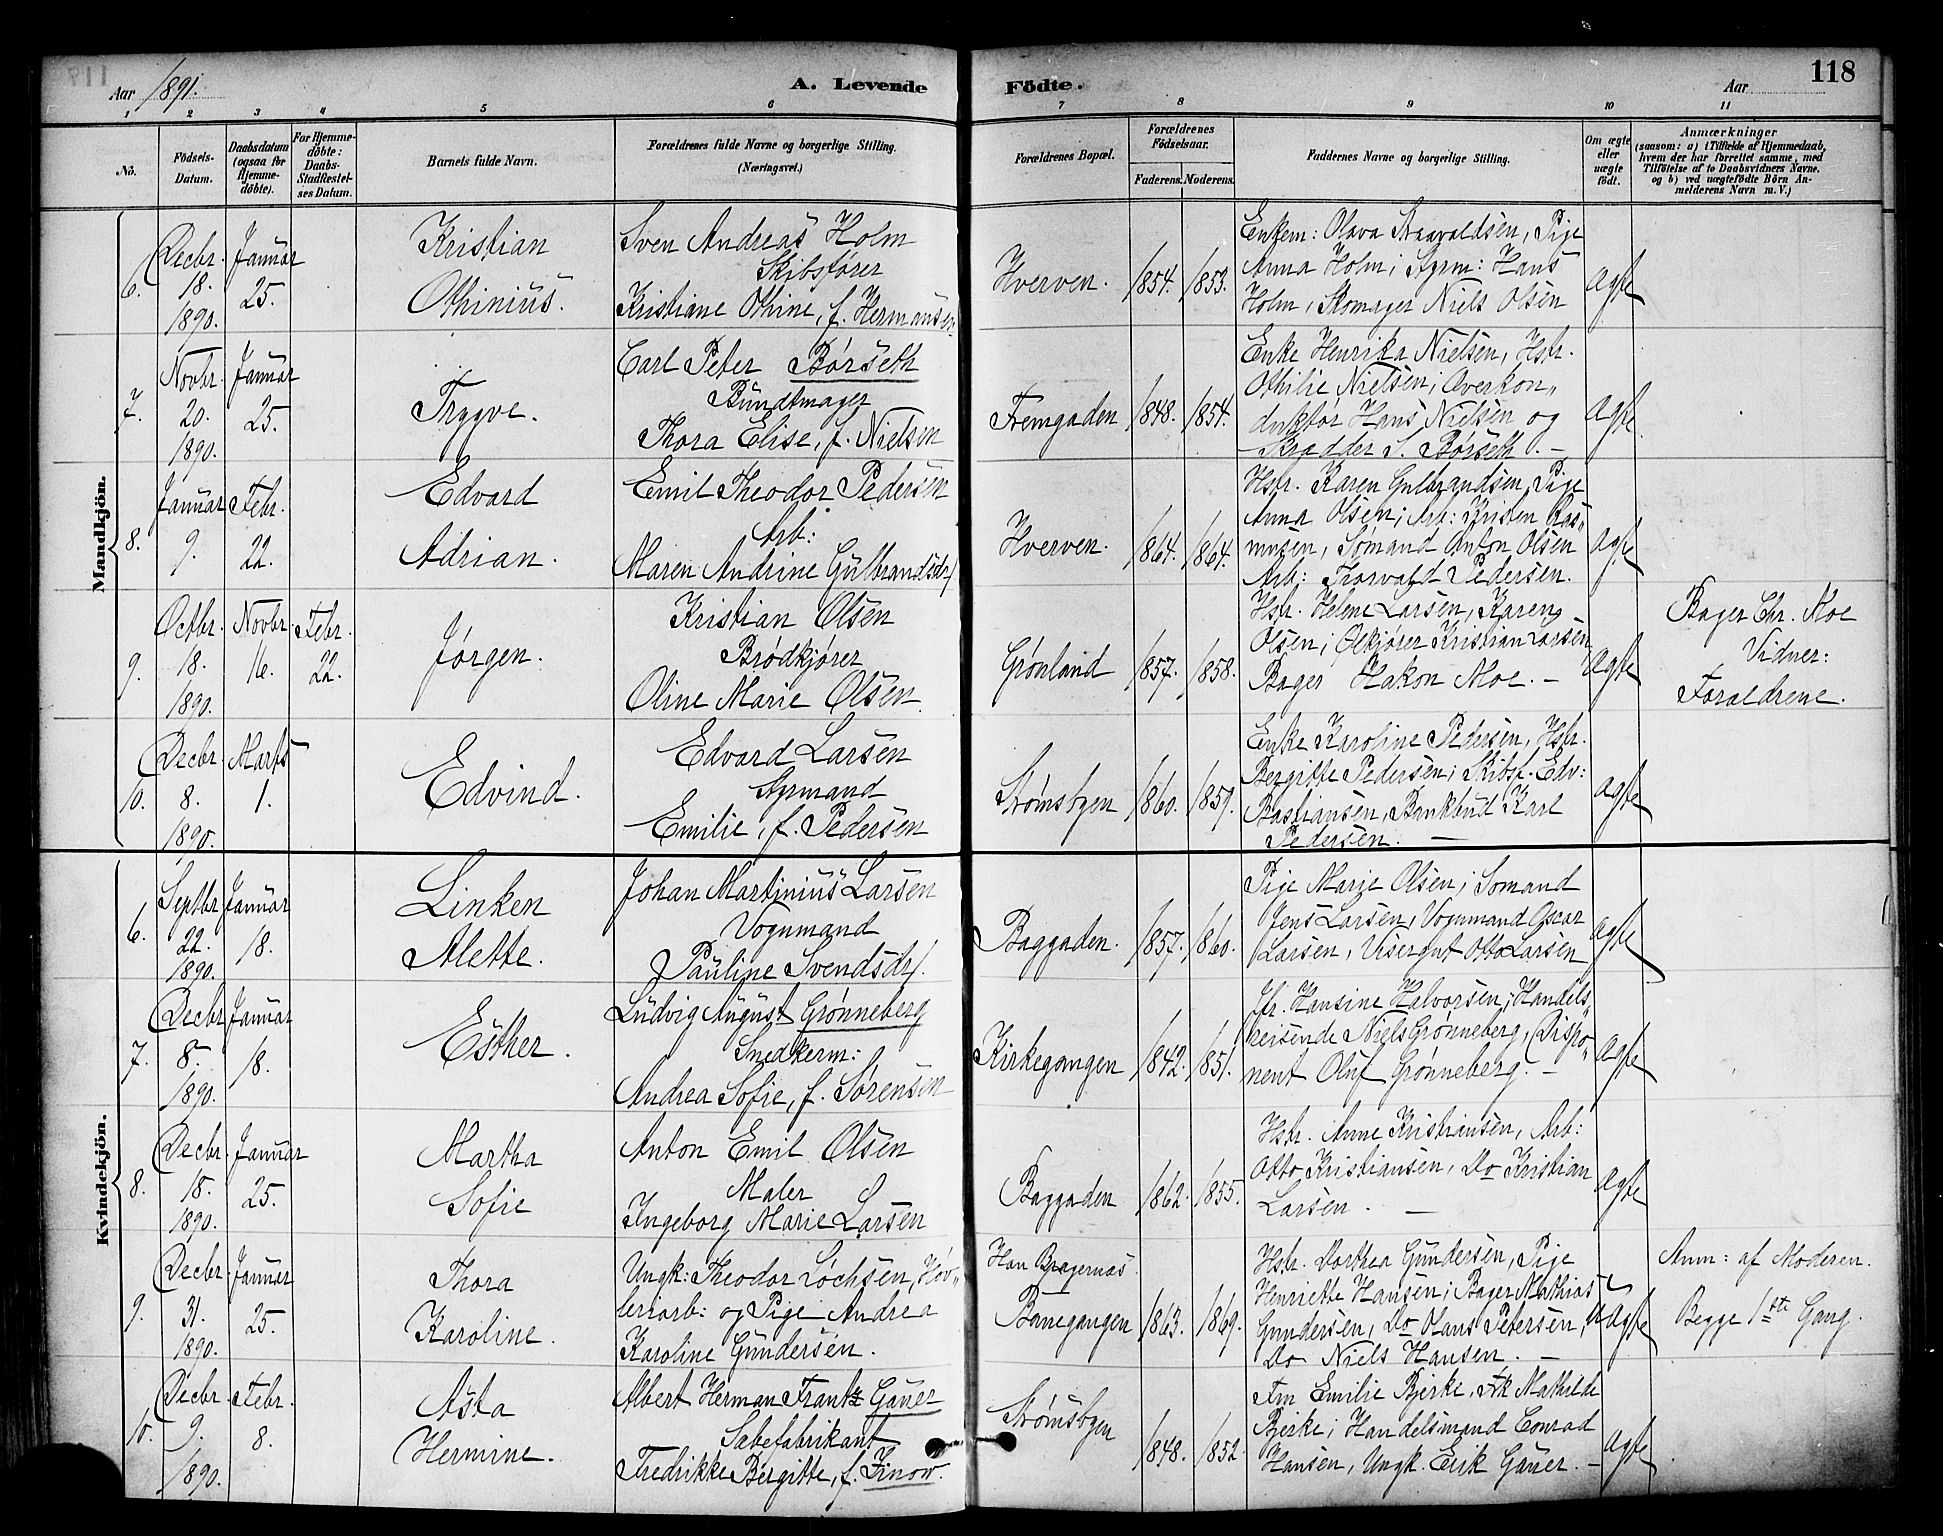 Aar 1891.
A. Levende Födte.
Aar
118
1 2 3 4 5 6 7 8 9 10 11
No.
Födsels-Datum.
Daabsdatum (ogsaa for Hjemme-döbte).
For Hjemme-döbte: Daabs-Stadfestel-ses Datum.
Barnets fulde Navn.
Forældrenes fulde Navne og borgerlige Stilling. (Næringsvei.)
Forældrenes Bopæl.
Forældrenes Födselsaar.
Faderens. Moderens.
Faddernes Navne og borgerlige Stilling.
Om ægte eller uægte födt.
Anmærkninger
(saasom: a) i Tilfælde af Hjemmedaab, hvem der har forrettet samme, med Tilföielse af to Daabsvidners Navne. og b) ved uægtefödte Börn An-melderens Navn m. V.)
Mandkjön.
6.
Decbr. 18. 1890.
Januar 25.
Kristian
Othinius.
Sven Andreas Holm
Skibsfører
Kristiane Othine, f. Hermansen
Hverven.
1854. 1853.
Enkem: Olava Straavaldsen, Pige
Anna Holm; Styrm: Hans
Holm, Skomager Niels Olsen
ægte
7.
Novbr. 20. 1890.
Januar 25.
Trygve.
Carl Peter Børseth
Bundtmager
Thora Elise, f. Nielsen
Fremgaden
1848. 1854.
Enke Henrika Nielsen, Hstr.
Othilie Nielsen; Overkon„
duktør Hans Nielsen og
Skrædder S. Børseth. –
ægte
8.
Januar 9.
Febr. 22.
Edvard
Adrian.
Emil Theodor Pedersen
Arb:
Maren Andrine Gulbrandsdr.
Hverven.
1864. 1864.
Hstr. Karen Gulbrandsen, Pige
Anna Olsen; Arb: Kristen Ras„
musen, Sømand Anton Olsen
Arb: Thorvald Pedersen.
ægte
9.
Octbr. 18. 1890.
Novbr. 16.
Febr. 22.
Jørgen.
Kristian Olsen
Brødkjører
Oline Marie Olsen
Grønland
1857. 1858.
Hstr. Helene Larsen, Karen
Olsen; Ølkjører Kristian Larsen
Bager Hakon Moe. –
ægte
Bager Chr. Moe
Vidner:
Forældrene.
10.
Decbr. 8. 1890.
Marts 1.
Edvind.
Edvard Larsen
Styrmand
Emilie, f. Pedersen
Strømsbyen
1860. 1859.
Enke Karoline Pedersen, Hstr.
Bergitte Pedersen; Skibsf. Edv:
Bastiansen, Bankbud Karl
Pedersen. –
ægte
Kvindekjön.
6.
Septbr. 22. 1890.
Januar 18.
Linken
Alette.
Johan Martinius Larsen
Vognmand
Pauline Svendsdr.
Baggaden.
1857. 1860.
Pige Marie Olsen; Sømand
Jens Larsen, Vognmand Oscar
Larsen, Visergut Otto Larsen
ægte
7.
Decbr. 8. 1890.
Januar 18.
Esther.
Ludvig August Grønneberg
Snedkerm:
Andrea Sofie, f. Sørensen
Kirkegangen
1842. 1851.
Jfr. Hansine Halvorsen; Handels„
reisende Niels Grønneberg, Dispo„
nent Oluf Grønneberg. –
ægte
8.
Decbr. 18. 1890.
Januar 25.
Martha
Sofie
Anton Emil Olsen
Maler
Ingeborg Marie Larsen
Baggaden
1862. 1855.
Hstr. Anne Kristiansen, Arb:
Otto Kristiansen, Do Kristian
Larsen. –
ægte
9.
Decbr. 31. 1890.
Januar 25.
Thora
Karoline.
Ungk: Theodor Lochsen, Høv„
leriarb: og Pige Andrea
Karoline Gundersen.
Han Bragernæs.
Banegangen
1863. 1869.
Hstr. Dorthea Gundersen, Pige
Henriette Hansen; Bager Mathias
Gundersen, Do Hans Petersen,
Do Niels Hansen. –
uægte
Anm: af Moderen.
Begge 1ste Gang.
10.
Decbr. 9. 1890.
Febr. 8.
Asta
Hermine.
Albert Herman Frantz Gauer
Sæbefabrikant
Fredrikke Bergitte, f. Finow.
Strømsbyen
1848. 1852
Fru Emilie Bjerke, Frk Mathilde
Bjerke; Handelsmand Conrad
Hansen, Ungk. Erik Gauer. –
ægte